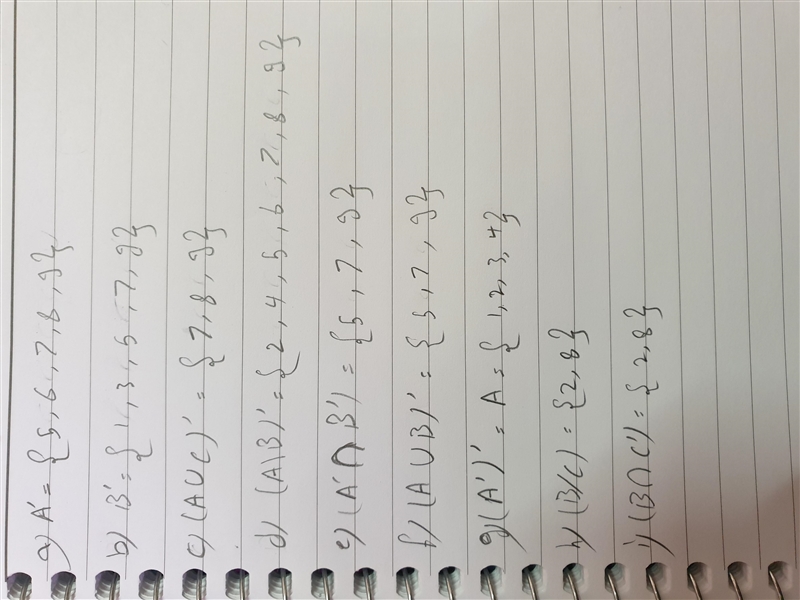 a) A' = {5, 6, 7, 8, 9}
b) B' = {1, 3, 5, 7, 9}
c) (A∪C)' = {7, 8, 9}
d) (A\B)' = {2, 4, 5, 6, 7, 8, 9}
e) (A'∩B') = {5, 7, 9}
f) (A∪B)' = {5, 7, 9}
g) (A')' = A = {1, 2, 3, 4}
h) (B/C) = {2, 8}
i) (B∩C') = {2, 8}